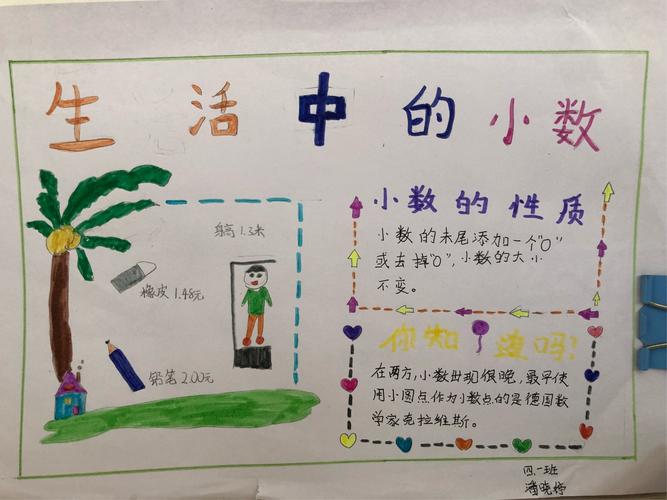 生活中的小数
身高1.3米
橡皮1.48元
铅笔2.00元
小数的性质
小数的末尾添加一个“0”
或去掉“0”,小数的大小
不变。
你知道吗?
在西方,小数出现很晚,最早使
用小圆点作为小数点的是德国数
学家克拉维斯。
四.一班
潘晓婷